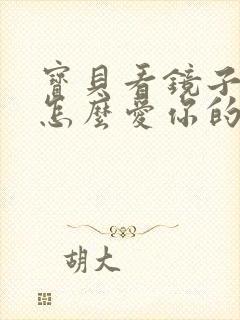 寶貝看鏡子
怎麼愛你的
胡大